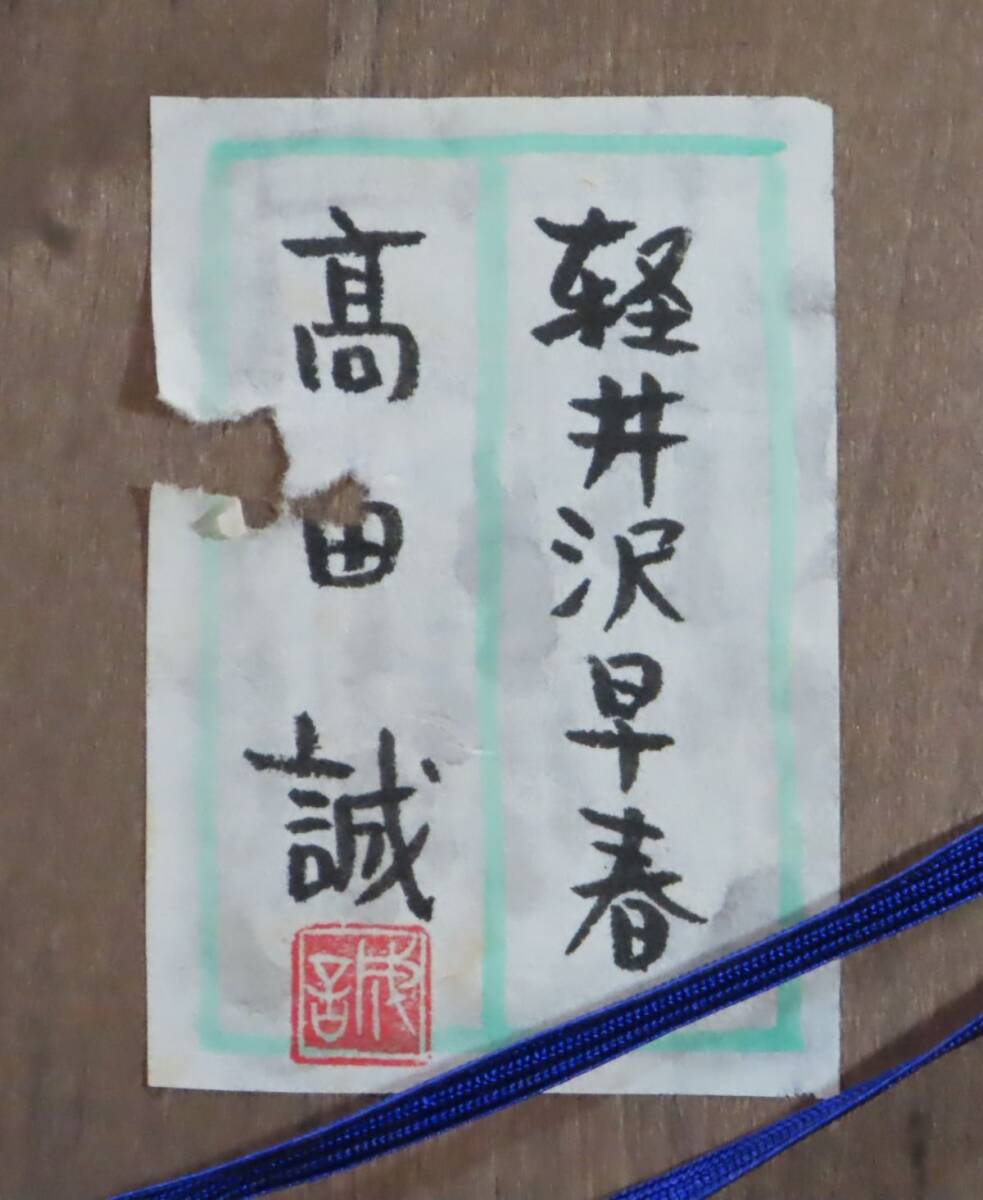 軽井沢早春
髙田誠
誠